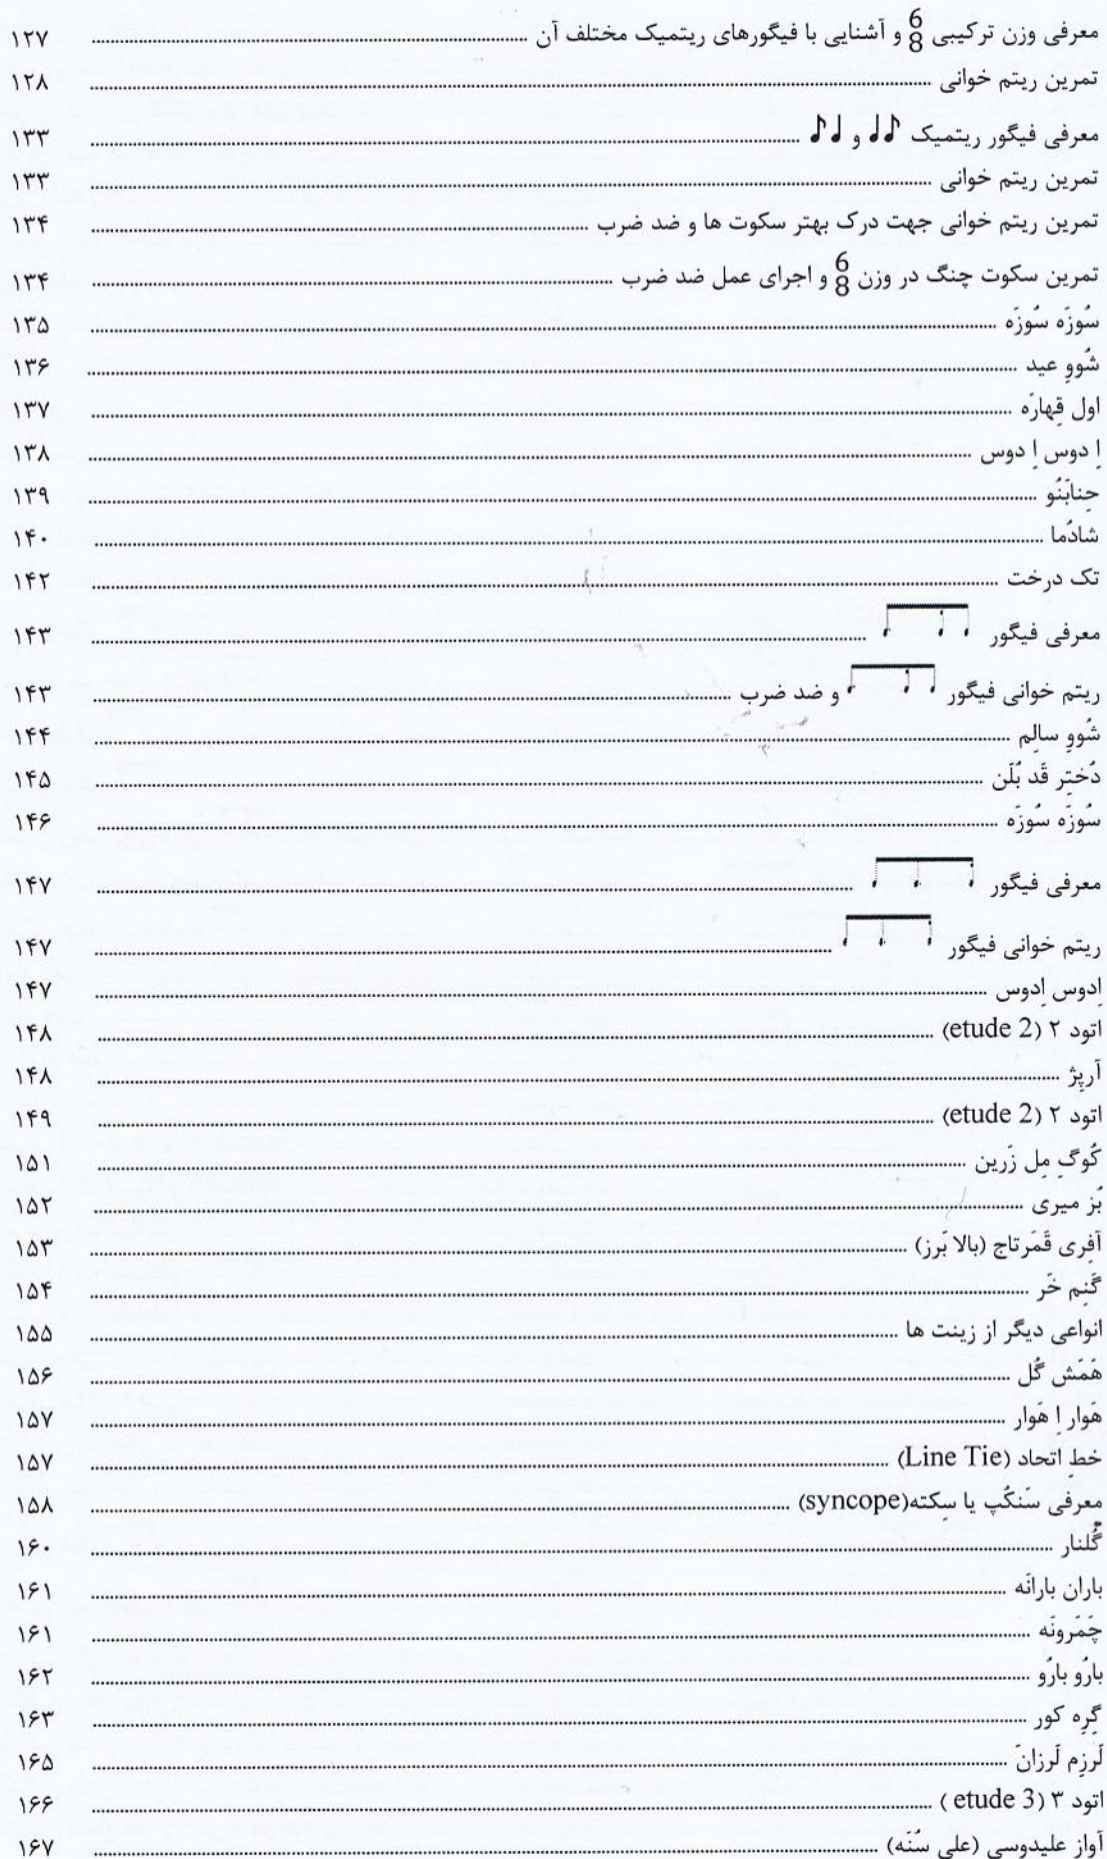 معرفی وزن ترکیبی 6/8 و آشنایی با فیگورهای ریتمیک مختلف آن ........ ۱۲۷
تمرین ریتم خوانی ........ ۱۲۸
معرفی فیگور ریتمیک ♩♪ و ♪♩ ........ ۱۳۳
تمرین ریتم خوانی ........ ۱۳۳
تمرین ریتم خوانی جهت درک بهتر سکوت ها و ضد ضرب ........ ۱۳۴
تمرین سکوت چنگ در وزن 6/8 و اجرای عمل ضد ضرب ........ ۱۳۴
سُوزَه سُوزَه ........ ۱۳۵
شُووِ عید ........ ۱۳۶
اول قِهارَه ........ ۱۳۷
اِ دوس اِ دوس ........ ۱۳۸
حِنابَنُو ........ ۱۳۹
شادُما ........ ۱۴۰
تک درخت ........ ۱۴۲
معرفی فیگور ........ ۱۴۳
ریتم خوانی فیگور و ضد ضرب ........ ۱۴۳
شُووِ سالِم ........ ۱۴۴
دُختِر قَد بُلَن ........ ۱۴۵
سُوزَه سُوزَه ........ ۱۴۶
معرفی فیگور ........ ۱۴۷
ریتم خوانی فیگور ........ ۱۴۷
اِدوس اِدوس ........ ۱۴۷
اتود ۲ (etude 2) ........ ۱۴۸
آرپِژ ........ ۱۴۸
اتود ۲ (etude 2) ........ ۱۴۹
کُوگِ مِل زَرین ........ ۱۵۱
بُز میری ........ ۱۵۲
آفِری قَمَرتاج (بالا بَرز) ........ ۱۵۳
گَنِم خَر ........ ۱۵۴
انواعی دیگر از زینت ها ........ ۱۵۵
هَمَش گُل ........ ۱۵۶
هَوار اِ هَوار ........ ۱۵۷
خطِ اتحاد (Line Tie) ........ ۱۵۷
معرفی سَنکُپ یا سِکته(syncope) ........ ۱۵۸
گُلنار ........ ۱۶۰
باران بارانَه ........ ۱۶۱
چَمَرونَه ........ ۱۶۱
بارُو بارُو ........ ۱۶۲
گِرِه کور ........ ۱۶۳
لَرزِم لَرزانَ ........ ۱۶۵
اتود ۳ (etude 3 ) ........ ۱۶۶
آواز علیدوسی (علی سُنَه) ........ ۱۶۷